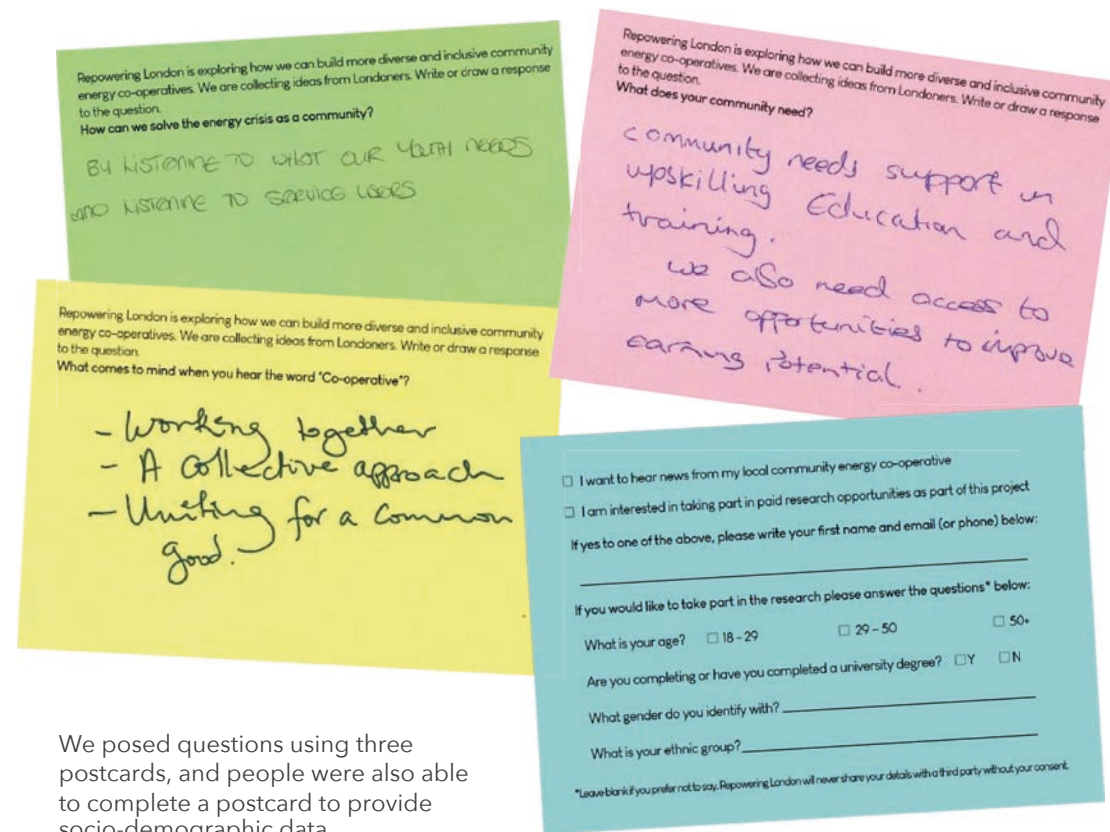 Repowering London is exploring how we can build more diverse and inclusive community
energy co-operatives. We are collecting ideas from Londoners. Write or draw a response
to the question.
How can we solve the energy crisis as a community?
BY LISTENING TO WHAT OUR YOUTH NEEDS
AND LISTENING TO SERVICE USERS
Repowering London is exploring how we can build more diverse and inclusive community
energy co-operatives. We are collecting ideas from Londoners. Write or draw a response
to the question.
What does your community need?
community needs support in
upskilling Education and
training.
we also need access to
more opportunities to improve
earning Potential.
Repowering London is exploring how we can build more diverse and inclusive community
energy co-operatives. We are collecting ideas from Londoners. Write or draw a response
to the question.
What comes to mind when you hear the word "Co-operative"?
- Working together
- A collective approach
- Uniting for a common
good.
☐ I want to hear news from my local community energy co-operative
☐ I am interested in taking part in paid research opportunities as part of this project
If yes to one of the above, please write your first name and email (or phone) below:
If you would like to take part in the research please answer the questions* below:
What is your age? ☐ 18 - 29 ☐ 29 - 50 ☐ 50+
Are you completing or have you completed a university degree? ☐Y ☐N
What gender do you identify with?
What is your ethnic group?
*Leave blank if you prefer not to say. Repowering London will never share your details with a third party without your consent.
We posed questions using three
postcards, and people were also able
to complete a postcard to provide
socio-demographic data